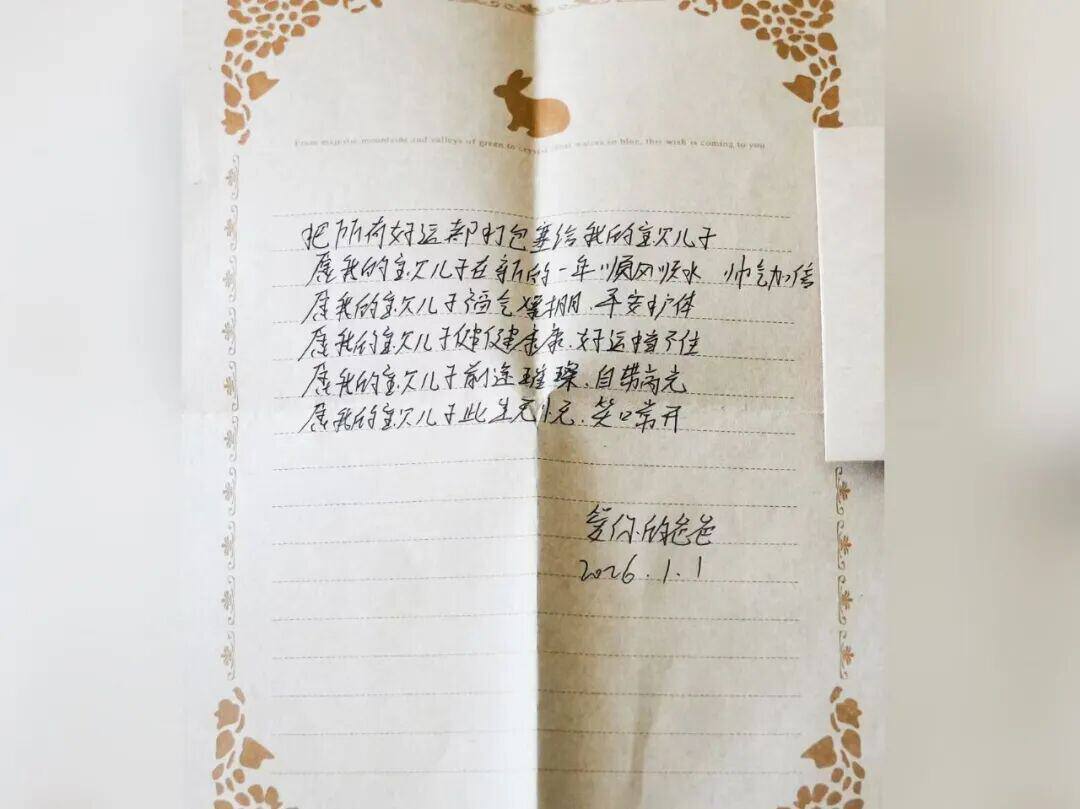 From majestic mountains and valleys of green to crystal clear waters so blue, this wish is coming to you
把所有好运都打包塞给我的宝贝儿子
愿我的宝贝儿子在新的一年顺风顺水 帅气加倍
愿我的宝贝儿子福气爆棚、平安护体
愿我的宝贝儿子健健康康、好运挡不住
愿我的宝贝儿子前途璀璨、自带高光
愿我的宝贝儿子此生无忧、笑口常开
爱你的爸爸
2026.1.1